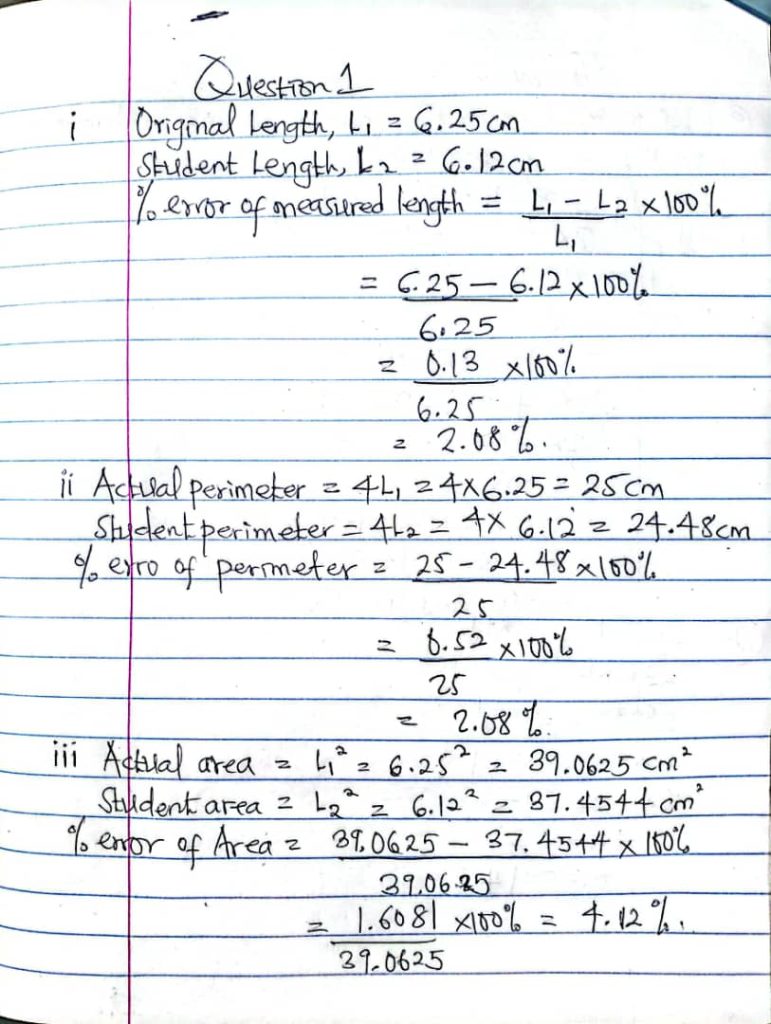 Question 1
i Original Length, L₁ = 6.25cm
Student Length, L₂ = 6.12cm
% error of measured length = L₁ - L₂ x100%
L₁
= 6.25 - 6.12 x100%
6.25
= 0.13 x100%
6.25
= 2.08%.
ii Actual perimeter = 4L₁ = 4x6.25 = 25cm
Student perimeter = 4L₂ = 4x 6.12 = 24.48cm
% erro of perimeter = 25 - 24.48 x100%
25
= 0.52 x100%
25
= 2.08%.
iii Actual area = L₁² = 6.25² = 39.0625 cm²
Student area = L₂² = 6.12² = 37.4544 cm²
% error of Area = 39.0625 - 37.4544 x 100%
39.0625
= 1.6081 x100% = 4.12%.
39.0625